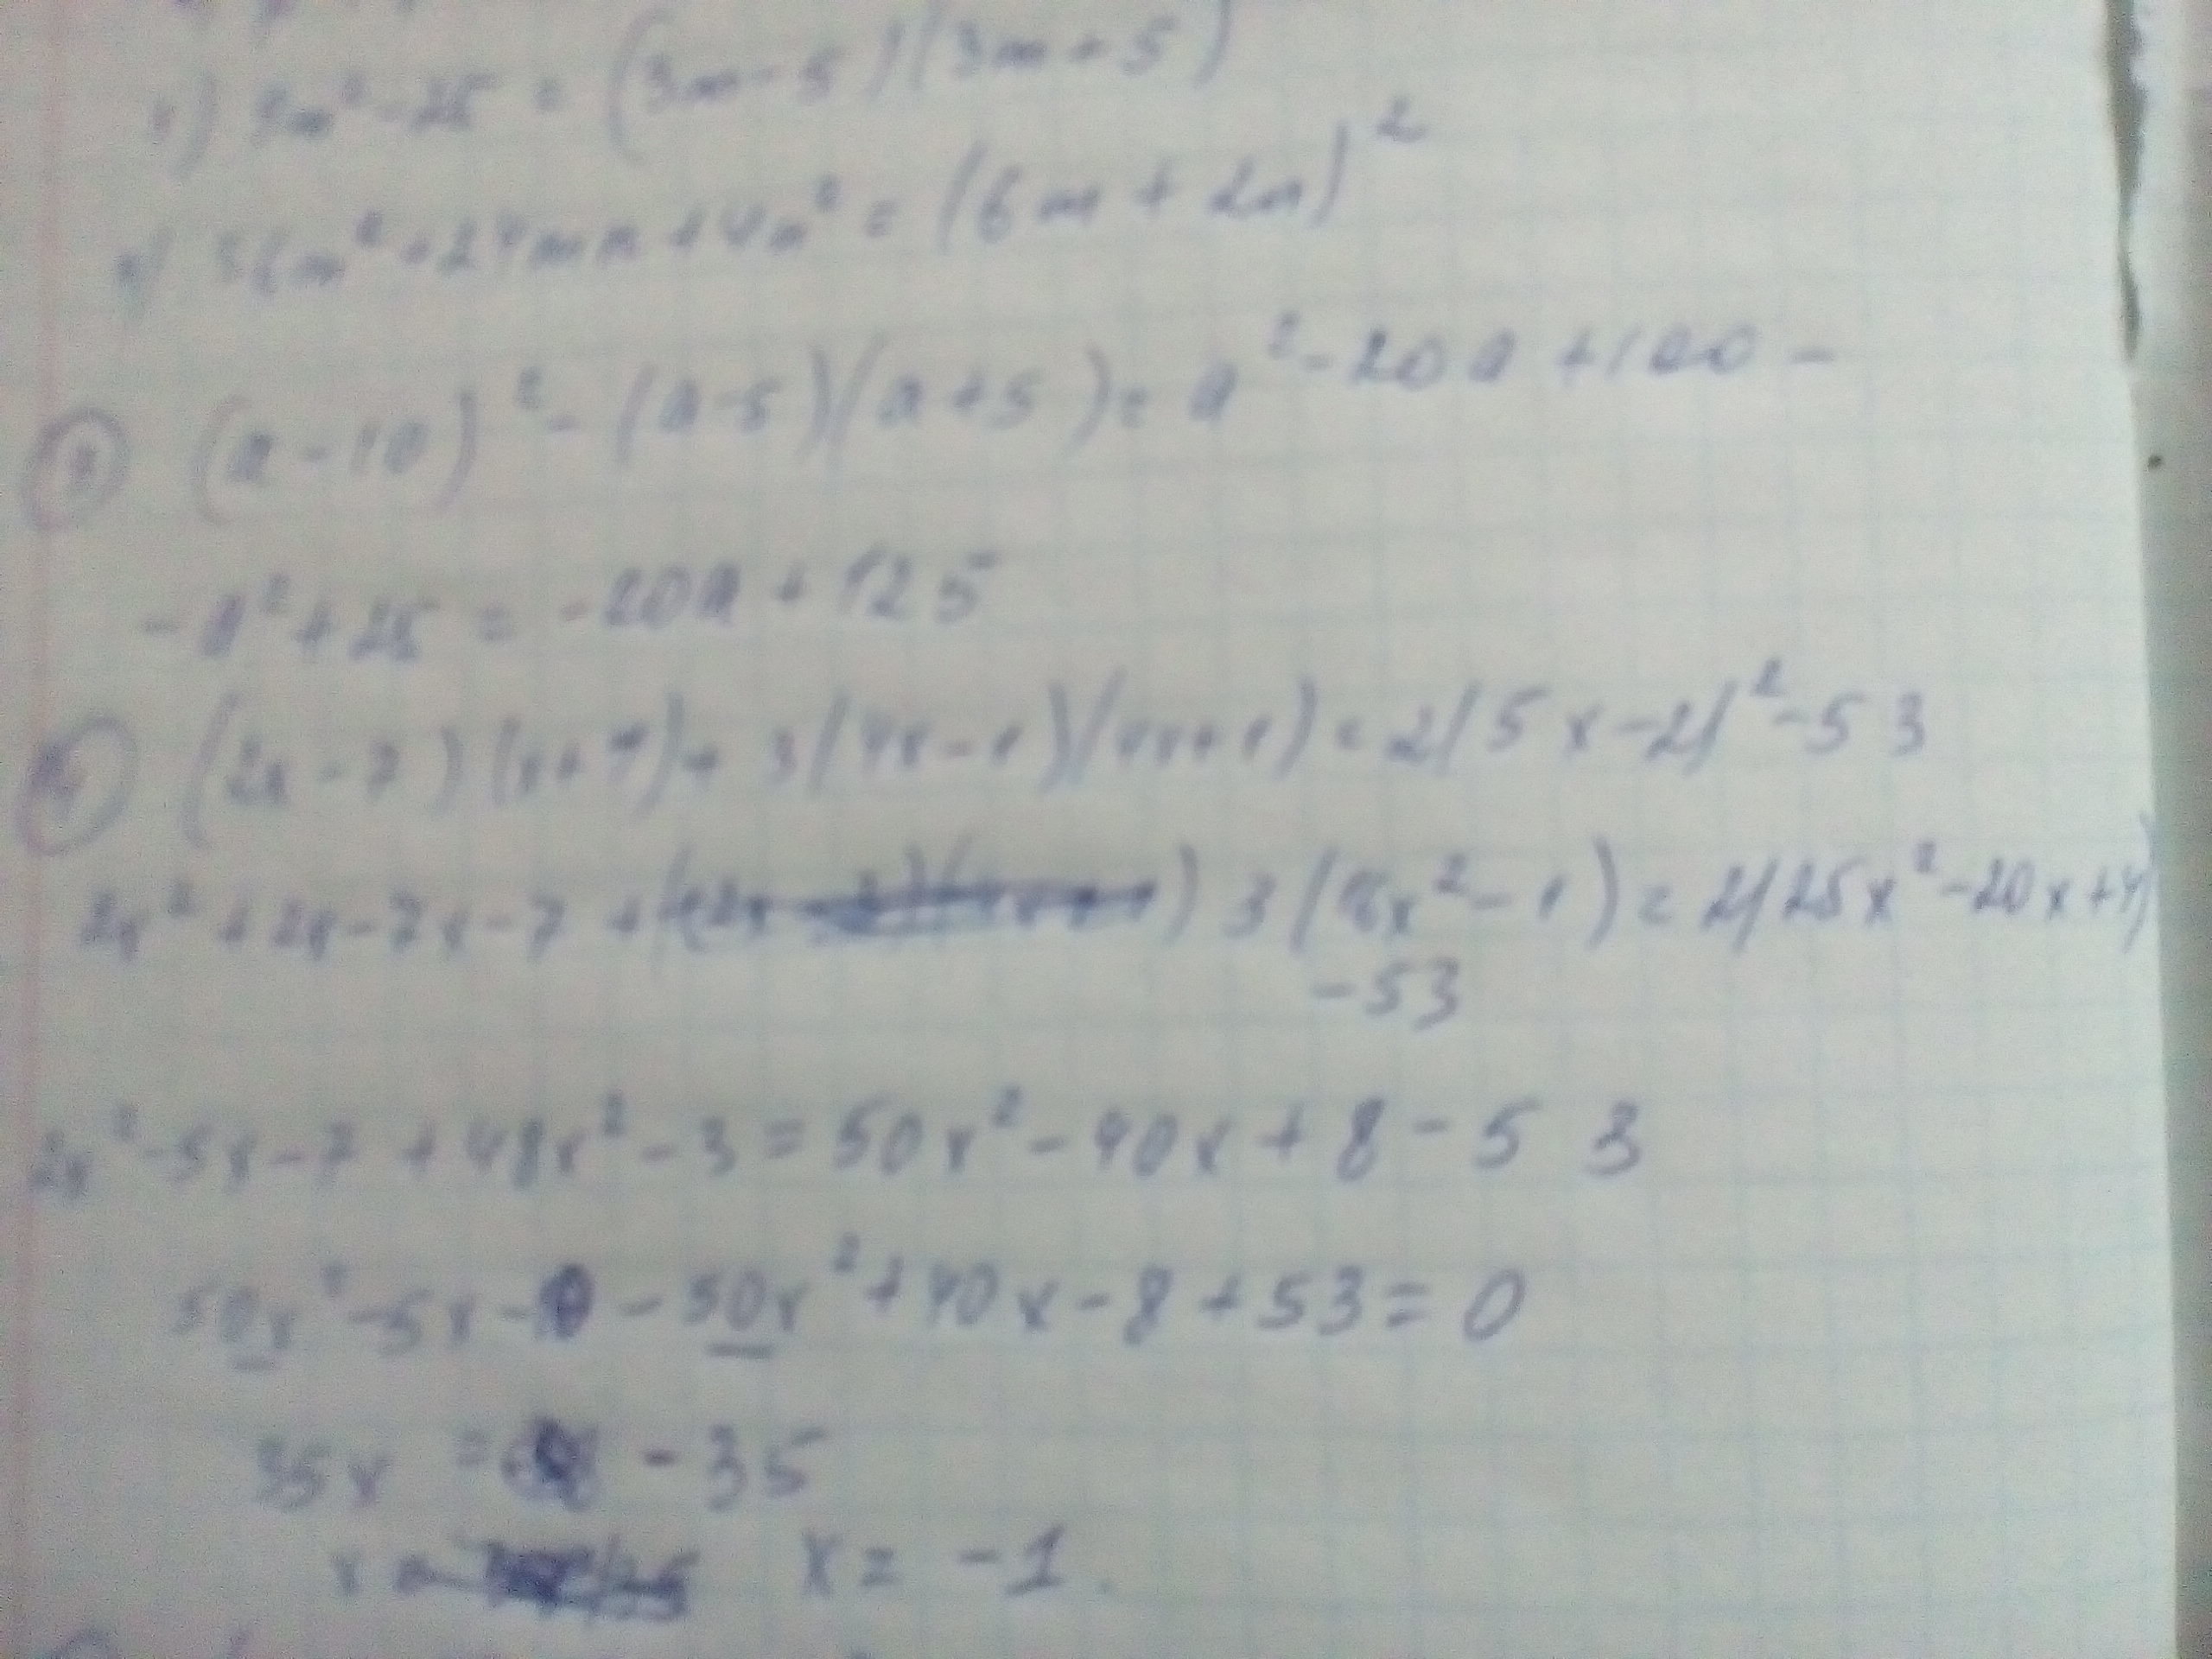 9m² - 25 = (3m - 5)(3m + 5)
36m² + 24mn + 4n² = (6m + 2n)²
③ (a - 10)² - (a - 5)(a + 5) = a² - 20a + 100 -
- a² + 25 = - 20a + 125
(2x - 7)(x + 1) + 3(4x - 1)(4x + 1) = 2(5x - 2)² - 53
2x² + 2x - 7x - 7 + 3(16x² - 1) = 2(25x² - 20x + 4)
- 53
2x² - 5x - 7 + 48x² - 3 = 50x² - 40x + 8 - 53
50x² - 5x - 10 - 50x² + 40x - 8 + 53 = 0
35x = - 35
x = - 1.